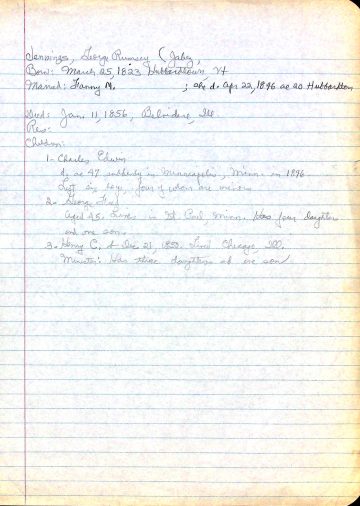 Jennings, George Rumsey (Jabez,
Born: March 25, 1823 Hubbardtown, Vt
Married: Fanny M. ; she d. Apr 22, 1896 ae 20 Hubbardton
Died: Jan. 11, 1856, Belvidere, Ill
Res:
Children:
1- Charles Edwin
d. ae 47 suddenly in Minneapolis, Minn. in 1896.
Left six boys, four of whom are
2- George Fred
aged 45. Lives in St Paul, Minn. Has four daughters
and one son.
3- Henry C. b Dec 21, Lives Chicago, Ill.
Minister: Has three daughters and one son